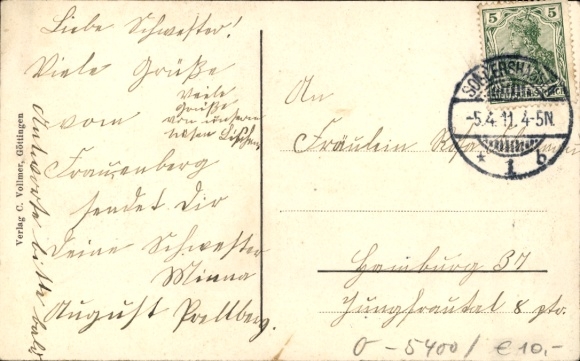 Liebe Schwester!
Viele Grüße
vom
Viele
Grüße
von unserm
Frauenberg
sendet Dir
Deine Schwester
Minna
August
Antworte bitte bald
Verlag C. Vollmer, Göttingen
An
Fräulein
Hamburg 37
Jungfrautal 8 ptr.
5
5
SONDERSHAUSEN
-5.4.11.4-5N.
* 1 b
0-5400/ € 10,-